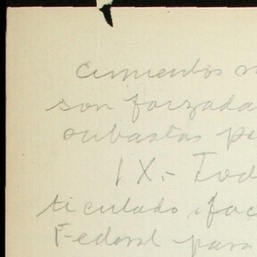 cimientos
son forzada
subastas p
IX.- Tod
ticulado, fac
Federal para